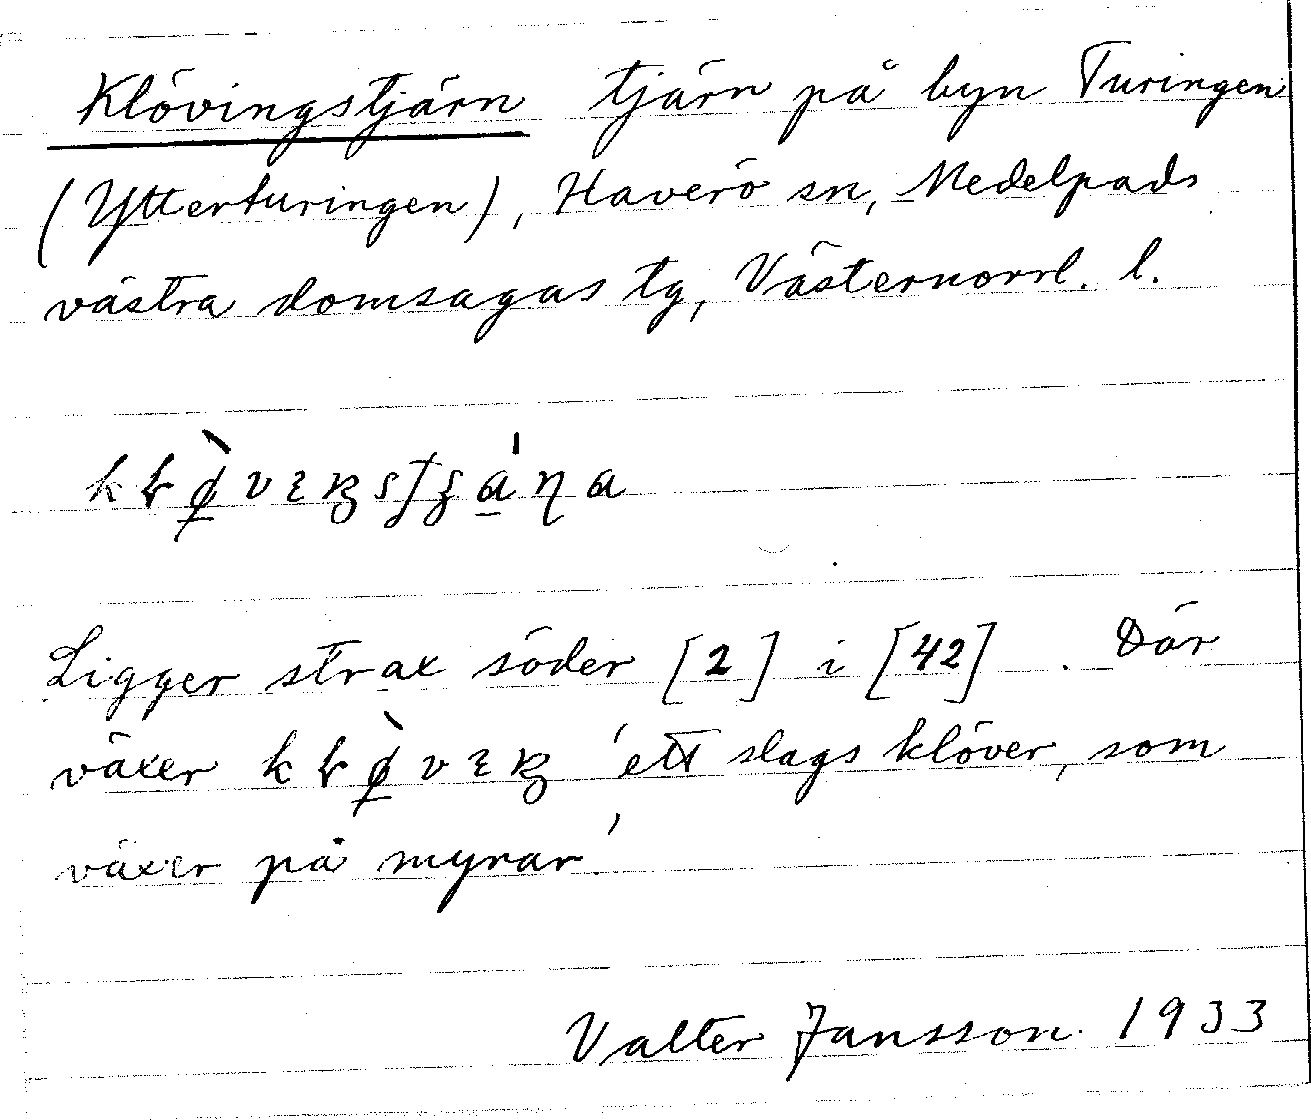 Klövingstjärn tjärn på byn Turingen
(Ytterturingen), Haverö sn, Medelpads
västra domsagas tg, Västernorrl. l.
Ligger strax söder [2] i [42] . Där
växer 'ett slags klöver, som
växer på myrar'
Valter Jansson 1933